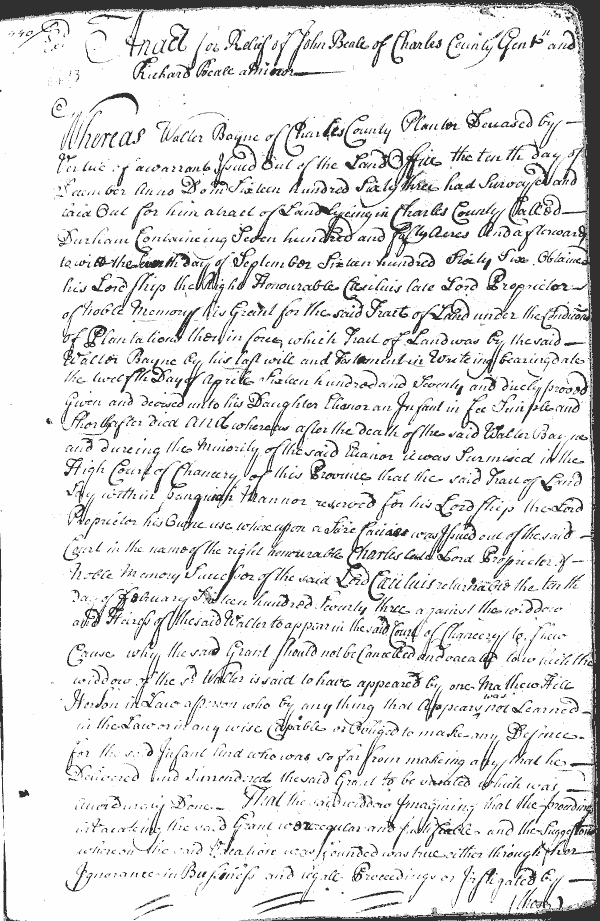 An act for Relief of John Beale of Charles County Gent and
Richard Beale a minor
Whereas Walter Bayne of Charles County Planter Deceased by
Vertue of a warrant Issued Out of the Land Office the tenth day of
December Anno Dom Sixteen hundred Sixty three had Surveyed and
laid Out for him a tract of Land Lyeing in Charles County Called
Durham Containeing Seven hundred and fifty Acres And afterwards
to witt the tenth day of September Sixteen hundred Sixty Six Obtained
his Lordship the Right Honourable Cæsilius late Lord Proprietor
of Noble Memory his Grant for the said Tract of Land under the Conditions
of Plantations then in force, which Tract of Land was by the said
Walter Bayne by his last will and testament in Writeing bearing date
the twelfth Day of Aprill Sixteen hundred and Seventy and duely proved
Given and devised unto his Daughter Elianor an Infant in Fee Simple and
Shortly after died And whereas after the death of the said Walter Bayne
and dureing the Minority of the said Eleanor it was Surmised in the
High Court of Chancery of this Province that the said Tract of Land
Lay within Mannor reserved for his Lordship the Lord
Proprietor his Owne use whereupon a Scire Facias was Issued out of the said
Court in the name of the right honourable Charles late Lord Proprietor of
Noble Memory Successor of the said Lord Cæsilius returnable the tenth
day of February Sixteen hundred Seventy three against the widdow
and Heires of the said Walter to appear in the said Court of Chancery to shew
Cause why the said Grant should not be Cancelled and vacated to which the
widdow of the sd Walter is said to have appeared by one Mathew Hill
Her son in Law a person who by any thing that Appears was not Learned
in the Law or in any wise Capable or Obliged to make any Defence
for the said Infant and who was so far from makeing any that he
Delivered and Surrendred the said Grant to be vacated which was
accordingly Done That the said widdow Imagining that the proceedings
in Vacateing the said Grant were regular and justifiable and the Suggestions
whereon the said Scire facias was founded was true either through her
Ignorance in Business and legall Proceedings or Instigated by